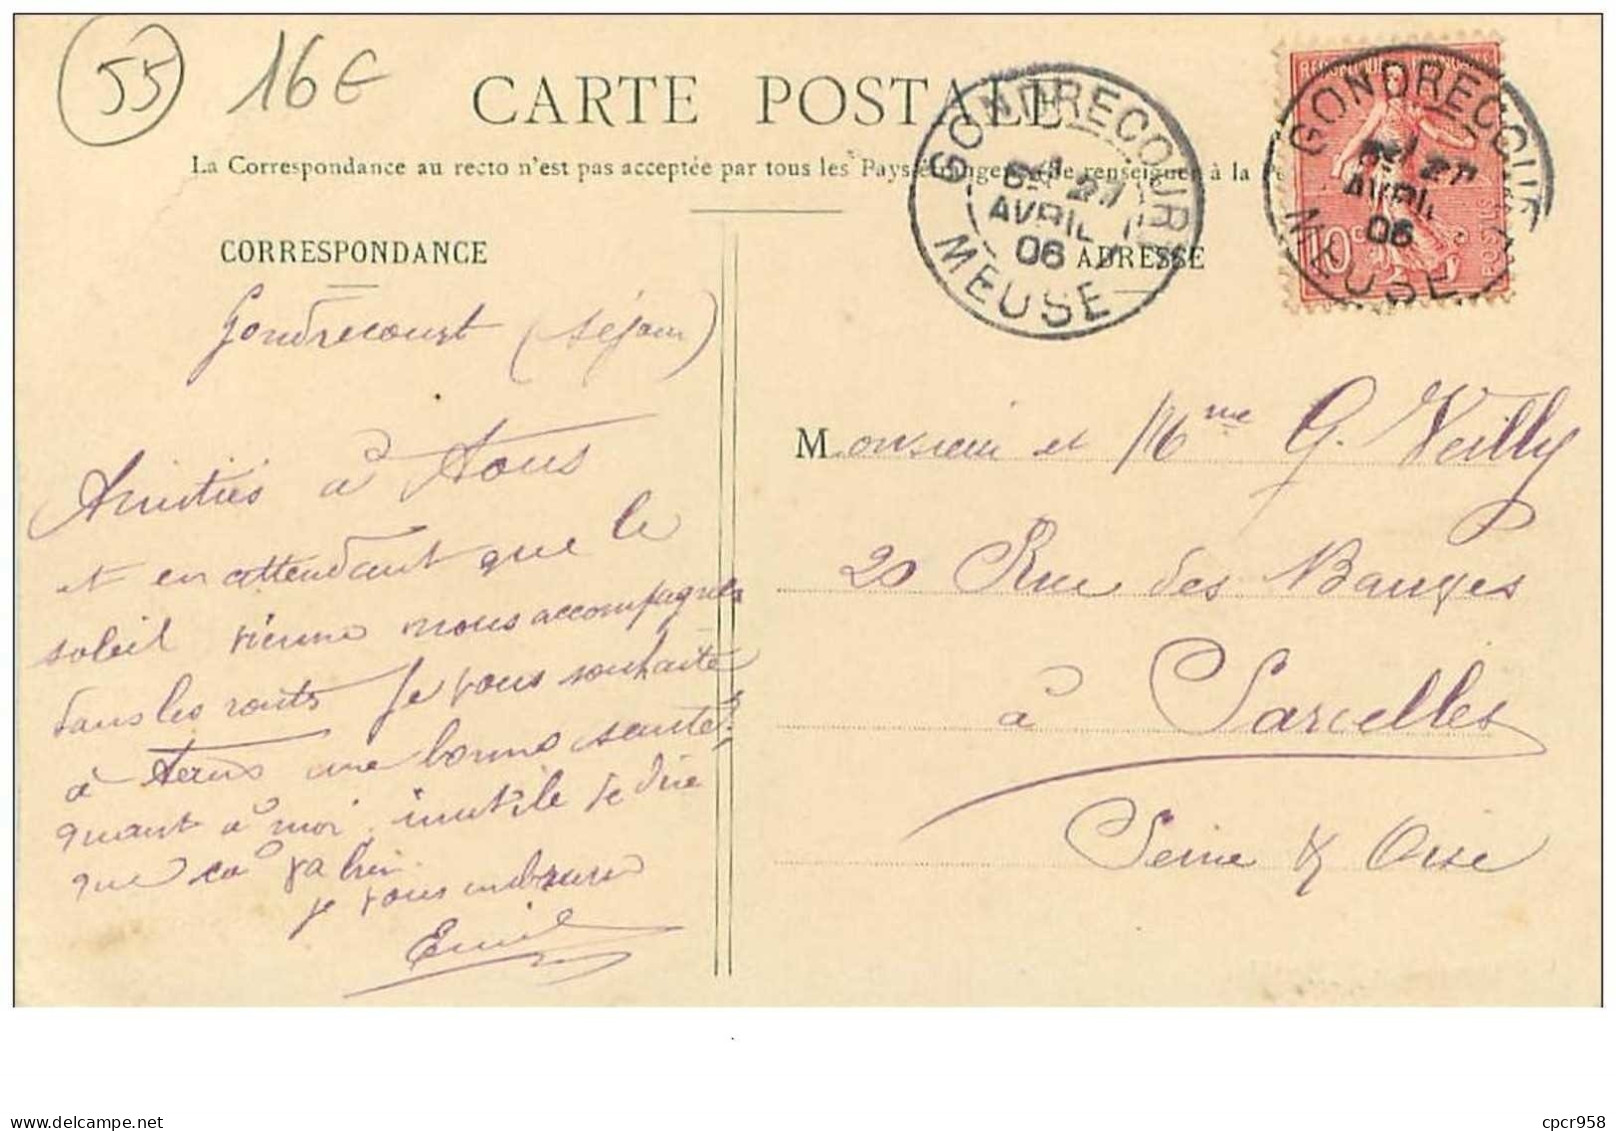 55 16€
CARTE POSTALE
La Correspondance au recto n'est pas acceptée par tous les Pays étrangers se renseigner à la
GONDRECOURT
27
AVRIL
06
MEUSE
REPUBLIQUE FRANÇAISE
10c
POSTES
GONDRECOURT
27
AVRIL
06
MEUSE
CORRESPONDANCE
Gondrecourt (séjour)
Amitiés à tous
et en attendant que le
soleil vienne nous accompagner
dans les routes je vous souhaite
à tous une bonne santé,
quant à moi, inutile de dire
que ça va bien
je vous embrasse
Emile
ADRESSE
Monsieur et Mme G. Veilly
20 Rue des Bauves
à Sarcelles
Seine & Oise
55677_11
cpcr958